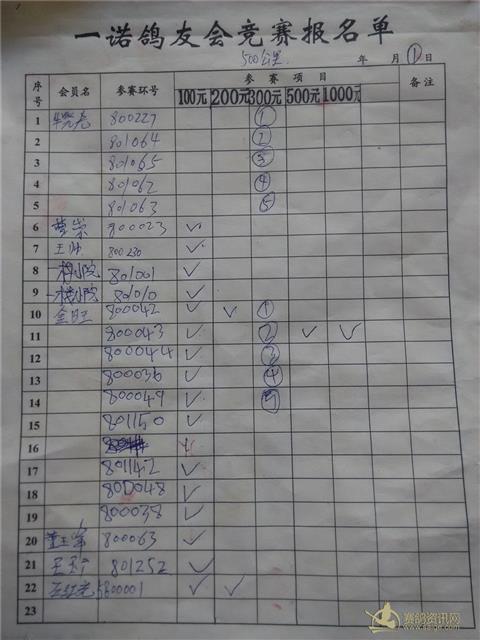 一诺鸽友会竞赛报名单
500公里 年 月 ① 日
序号 会员名 参赛环号 参赛项目 备注
100元 200元 300元 500元 1000元
1 800227 ①
2 801064 ②
3 801065 ③
4 801062 ④
5 801063 ⑤
6 800023 ✓
7 王帅 800230 ✓
8 801001 ✓
9 801010 ✓
10 金旺 800042 ✓ ✓ ①
11 800043 ✓ ② ✓ ✓
12 800044 ✓ ③
13 800036 ✓ ④
14 800049 ✓ ⑤
15 801150 ✓
16
17 801142 ✓
18 800048 ✓
19 800038 ✓
20 800063 ✓
21 801252 ✓
22 5800001 ✓ ✓
23
赛鸽资讯网